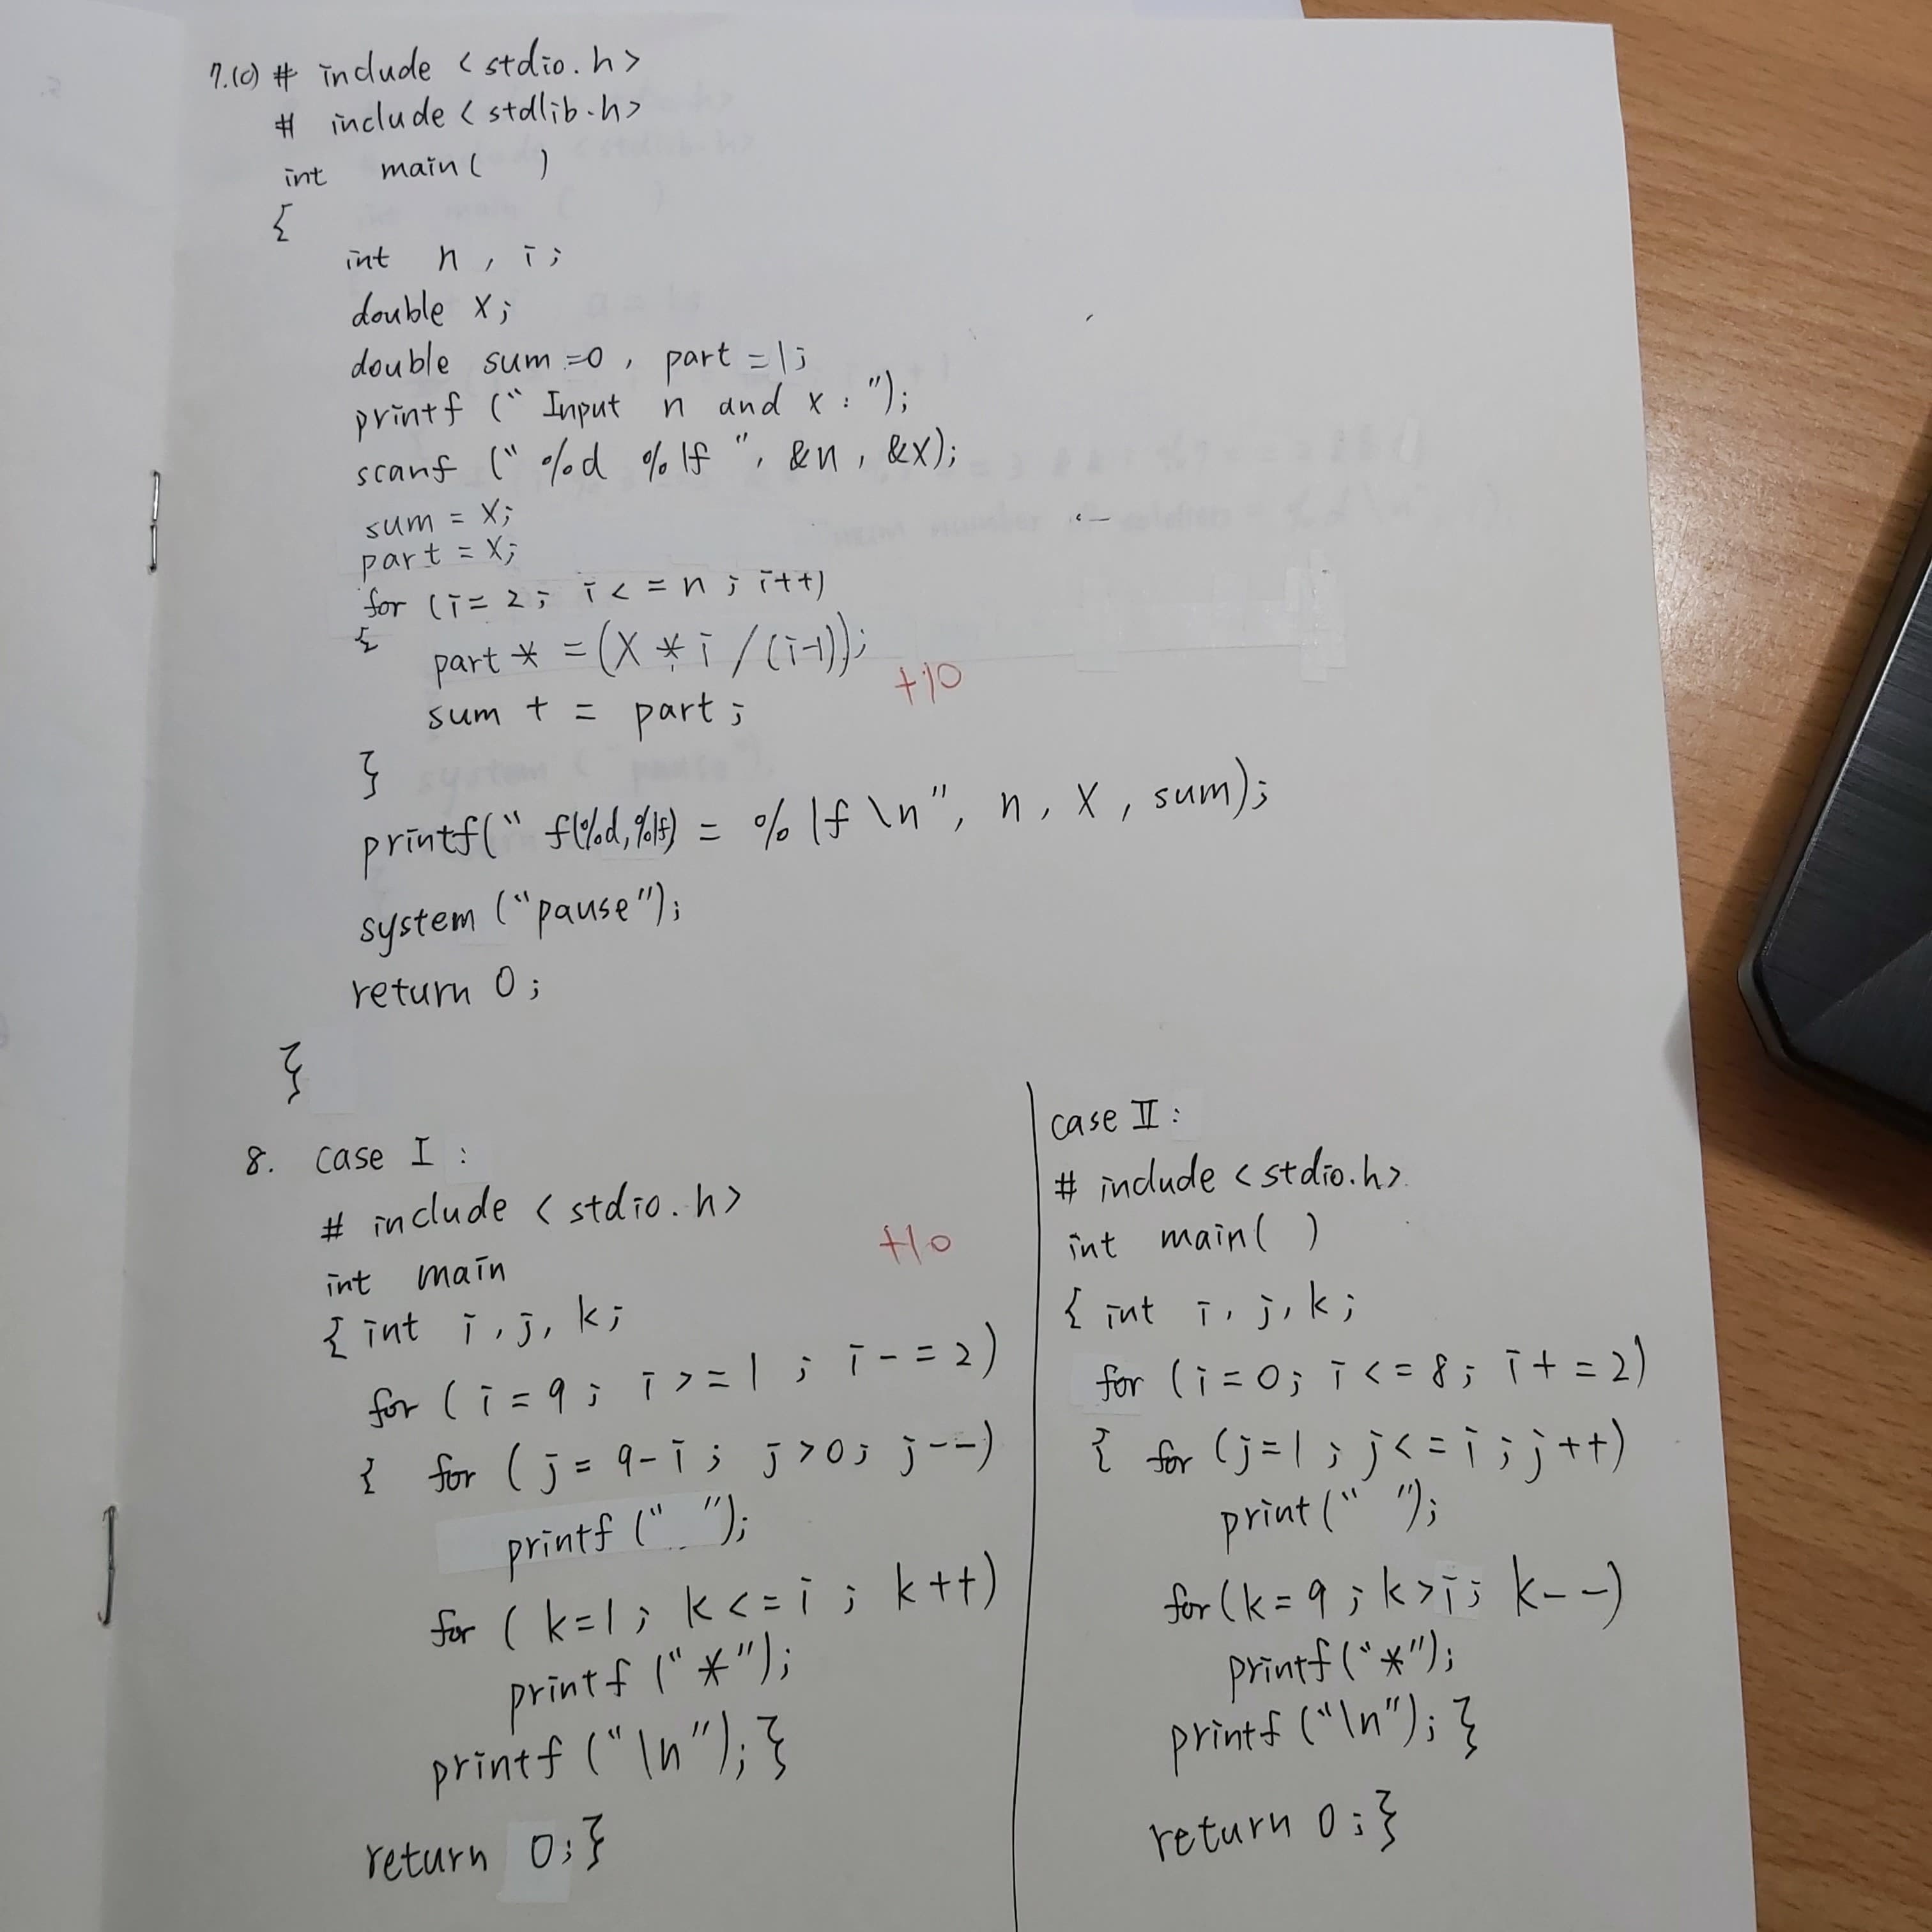 7.(c) # include <stdio.h>
# include <stdlib.h>
int main( )
{
int n, i;
double x;
double sum=0, part=1;
printf (" Input n and x : ");
scanf (" %d %lf ", &n, &x);
sum = x;
part = x;
for (i= 2; i <= n; i++)
{
part * = (x * i / (i-1));
+10
sum + = part;
}
printf(" f(%d,%lf) = %lf \n", n, x, sum);
system ("pause");
return 0;
}
8. case I :
# include <stdio.h>
+10
int main
{ int i, j, k;
for ( i = 9; i >= 1 ; i - = 2)
{ for ( j = 9-i ; j >0; j--)
printf (" ");
for ( k=1; k <= i ; k++)
printf ("*");
printf ("\n"); }
return 0; }
case II :
# include <stdio.h>
int main( )
{ int i, j, k;
for (i=0; i <= 8; i + = 2)
{ for (j=1; j <= i; j++)
print (" ");
for(k=9; k>i; k--)
printf ("*");
printf ("\n"); }
return 0; }